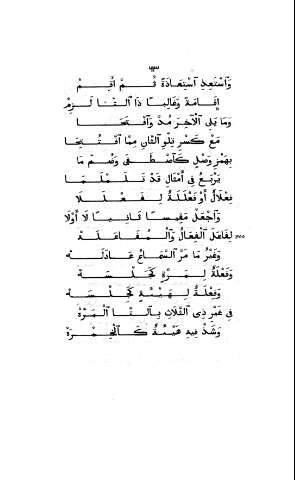 ٤٣
وَٱسْتَعِذِ ٱسْتِعَاذَةً ثُمَّ أَقِمْ
إِقَامَةً وَغَالِبًا ذَا ٱلتَّا لَزِمْ
وَمَا يَلِي ٱلْآخِرَ مُدَّ وَٱفْتَحَا
مَعْ كَسْرِ تِلْوِ ٱلثَّانِ مِمَّا ٱفْتُتِحَا
بِهَمْزِ وَصْلٍ كَٱصْطَفَى وَضُمَّ مَا
يَرْبَعُ فِي أَمْثَالِ قَدْ تَلَمْلَمَا
فِعْلَالٌ أَوْ فَعْلَلَةٌ لِفَعْلَلَا
وَٱجْعَلْ مَقِيسًا ثَانِيًا لَا أَوَّلَا
لِفَاعَلَ ٱلْفِعَالُ وَٱلْمُفَاعَلَهْ
وَغَيْرُ مَا مَرَّ ٱلسَّمَاعُ عَادَلَهْ
وَفَعْلَةٌ لِمَرَّةٍ كَجَلْسَهْ
وَفِعْلَةٌ لِهَيْئَةٍ كَجِلْسَهْ
فِي غَيْرِ ذِي ٱلثَّلَاثِ بِٱلتَّا ٱلْمَرَّهْ
وَشَذَّ فِيهِ هَيْئَةٌ كَٱلْخِمْرَهْ